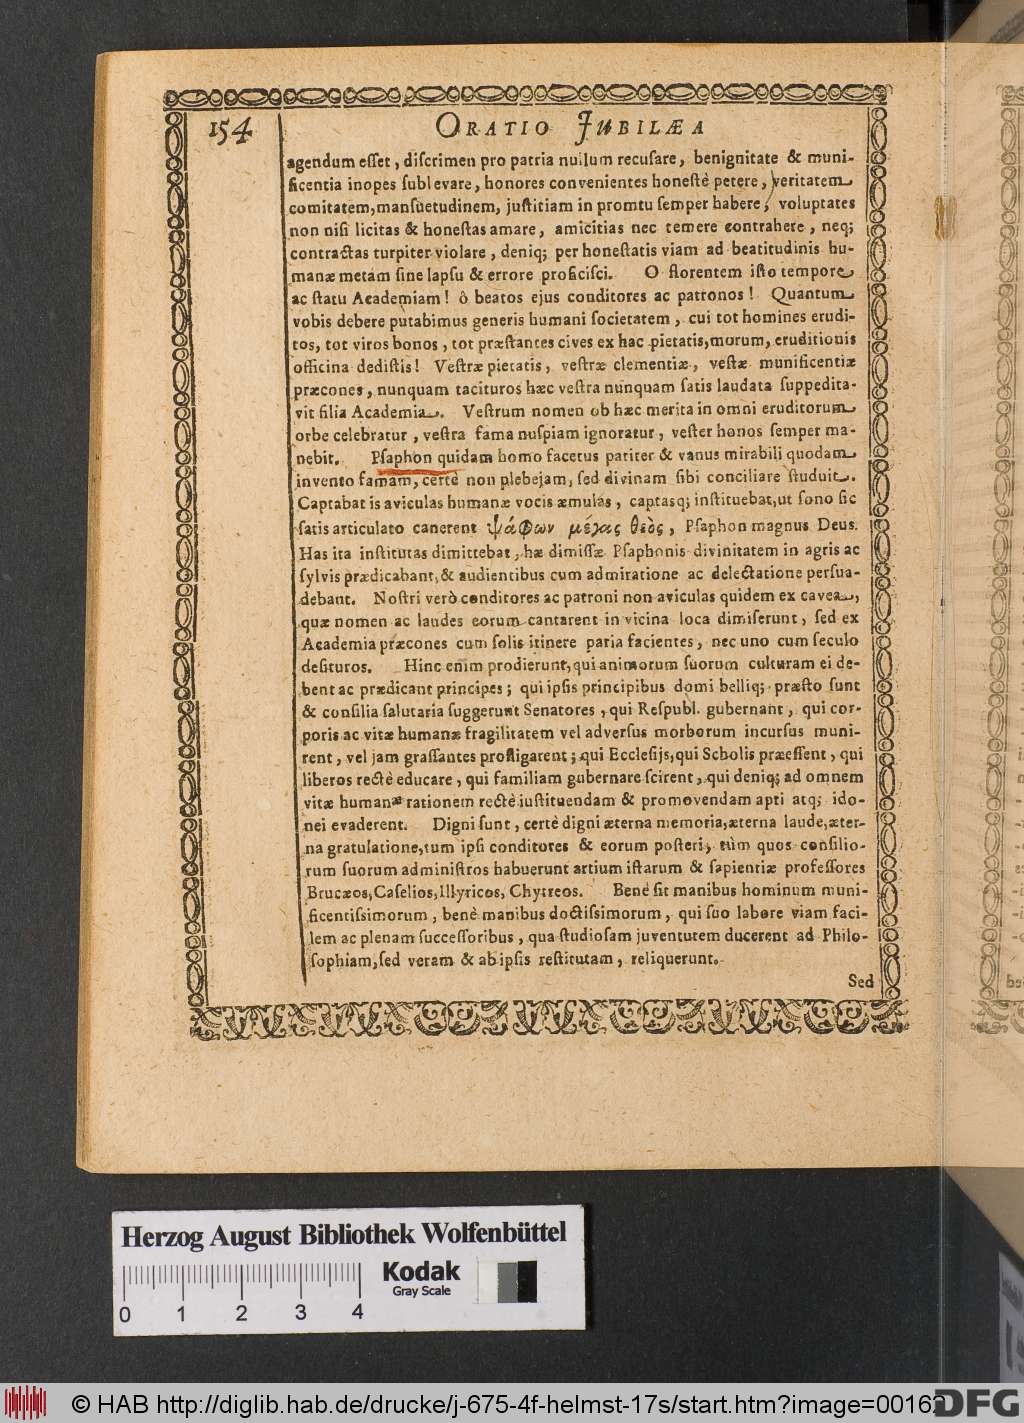 154 ORATIO JUBILÆA
agendum esset, discrimen pro patria nullum recusare, benignitate & muni-
ficentia inopes sublevare, honores convenientes honestè petere, veritatem
comitatem, mansuetudinem, justitiam in promtu semper habere, voluptates
non nisi licitas & honestas amare, amicitias nec temere contrahere, neq;
contractas turpiter violare, deniq; per honestatis viam ad beatitudinis hu-
manæ metam sine lapsu & errore proficisci. O florentem isto tempore
ac statu Academiam! ô beatos ejus conditores ac patronos! Quantum
vobis debere putabimus generis humani societatem, cui tot homines erudi-
tos, tot viros bonos, tot præstantes cives ex hac pietatis, morum, eruditionis
officina dedistis! Vestræ pietatis, vestræ clementiæ, vestæ munificentiæ
præcones, nunquam tacituros hæc vestra nunquam satis laudata suppedita-
vit filia Academia. Vestrum nomen ob hæc merita in omni eruditorum
orbe celebratur, vestra fama nuspiam ignoratur, vester honos semper ma-
nebit. Psaphon quidam homo facetus pariter & vanus mirabili quodam
invento famam, certè non plebejam, sed divinam sibi conciliare studuit.
Captabat is aviculas humanæ vocis æmulas, captasq; instituebat, ut sono sic
satis articulato canerent ψάφων μέγας θεὸς, Psaphon magnus Deus.
Has ita institutas dimittebat, hæ dimissæ Psaphonis divinitatem in agris ac
sylvis prædicabant, & audientibus cum admiratione ac delectatione persua-
debant. Nostri verò conditores ac patroni non aviculas quidem ex cavea,
quæ nomen ac laudes eorum cantarent in vicina loca dimiserunt, sed ex
Academia præcones cum solis itinere paria facientes, nec uno cum seculo
desituros. Hinc enim prodierunt, qui animorum suorum culturam ei de-
bent ac prædicant principes; qui ipsis principibus domi belliq; præsto sunt
& consilia salutaria suggerunt Senatores, qui Respubl. gubernant, qui cor-
poris ac vitæ humanæ fragilitatem vel adversus morborum incursus muni-
rent, vel jam grassantes profligarent; qui Ecclesijs, qui Scholis præessent, qui
liberos rectè educare, qui familiam gubernare scirent, qui deniq; ad omnem
vitæ humanæ rationem rectè iustituendam & promovendam apti atq; ido-
nei evaderent. Digni sunt, certè digni æterna memoria, æterna laude, æter-
na gratulatione, tum ipsi conditores & eorum posteri, tùm quos consilio-
rum suorum administros habuerunt artium istarum & sapientiæ professores
Brucæos, Caselios, Illyricos, Chytreos. Benè sit manibus hominum muni-
ficentissimorum, benè manibus doctissimorum, qui suo labore viam faci-
lem ac plenam successoribus, qua studiosam juventutem ducerent ad Philo-
sophiam, sed veram & ab ipsis restitutam, reliquerunt.
Sed
Herzog August Bibliothek Wolfenbüttel
Kodak
Gray Scale
0 1 2 3 4
© HAB http://diglib.hab.de/drucke/j-675-4f-helmst-17s/start.htm?image=00162
DFG